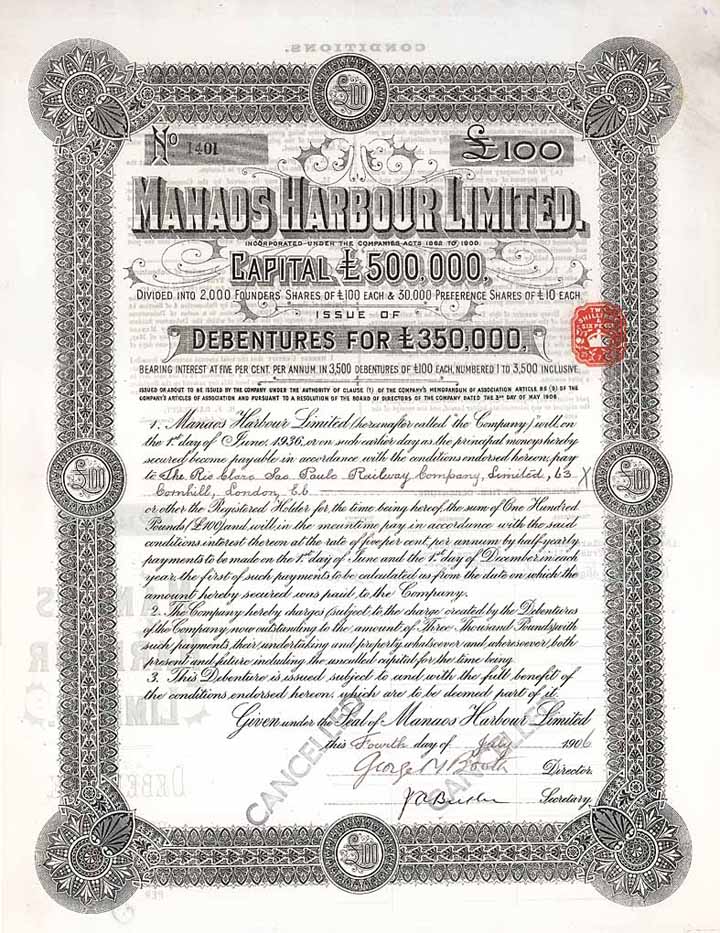 CONDITIONS.
£100
No 1401
£100
MANAOS HARBOUR LIMITED.
INCORPORATED UNDER THE COMPANIES ACTS 1862 TO 1900.
CAPITAL £500,000,
DIVIDED INTO 2,000 FOUNDERS' SHARES OF £100 EACH & 30,000 PREFERENCE SHARES OF £10 EACH.
ISSUE OF
DEBENTURES FOR £350,000,
TWO SHILLINGS & SIX PENCE
BEARING INTEREST AT FIVE PER CENT. PER ANNUM IN 3,500 DEBENTURES OF £100 EACH, NUMBERED 1 TO 3,500 INCLUSIVE.
ISSUED OR ABOUT TO BE ISSUED BY THE COMPANY UNDER THE AUTHORITY OF CLAUSE (1) OF THE COMPANY'S MEMORANDUM OF ASSOCIATION ARTICLE 85 (B) OF THE
COMPANY'S ARTICLES OF ASSOCIATION AND PURSUANT TO A RESOLUTION OF THE BOARD OF DIRECTORS OF THE COMPANY DATED THE 2ND DAY OF MAY 1906.
1. Manaos Harbour Limited (hereinafter called "the Company") will, on
the 1st day of June, 1936, or on such earlier day as the principal moneys hereby
secured become payable in accordance with the conditions endorsed hereon, pay
to The Rio Claro Sao Paulo Railway Company, Limited, 63 X
Cornhill, London, E.C.
£100
£100
or other the Registered Holder for the time being hereof, the sum of One Hundred
Pounds (£100) and will, in the meantime pay in accordance with the said
conditions interest thereon at the rate of five per cent, per annum by half-yearly
payments to be made on the 1st day of June and the 1st day of December, in each
year, the first of such payments to be calculated as from the date on which the
amount hereby secured was paid to the Company.
2. The Company hereby charges (subject to the charge created by the Debentures
of the Company now outstanding to the amount of Three Thousand Pounds) with
such payments, their undertaking and property whatsoever and wheresoever, both
present and future including the uncalled capital for the time being.
3. This Debenture is issued subject to and with the full benefit of
the conditions endorsed hereon, which are to be deemed part of it.
Given under the Seal of Manaos Harbour Limited
this Fourth day of July 1906
George M Booth Director.
Secretary.
CANCELLED
CANCELLED
£100